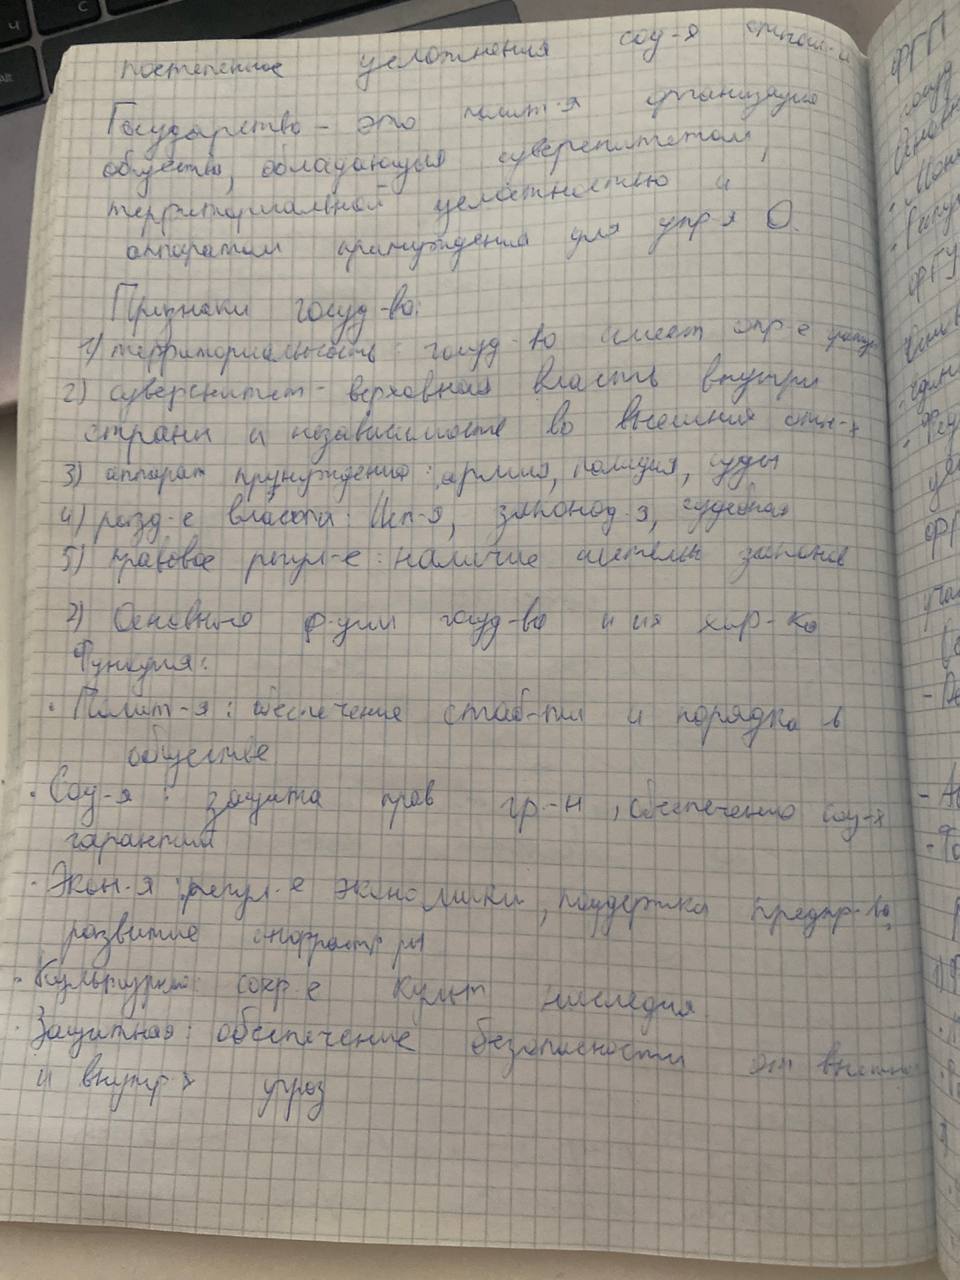 постепенное усложнения соц-я
Государство – это полит-я организация
общества, обладающая суверенитетом,
территориальной целостностью и
аппаратом принуждения для упр-я О.
Признаки госуд-во:
1) территориальность: госуд-во имеет опр-е
2) суверенитет – верховная власть внутри
страны и независимость во внешних отн-х
3) аппарат принуждения: армия, полиция, суды
4) разд-е власти: Исп-я, законод-я, судебная
5) правовое регул-е: наличие системы законов
2) Основные ф-ции госуд-во и их хар-ка
Функция:
· Полит-я: обеспечение стаб-ти и порядка в
обществе
· Соц-я: защита прав гр-н, обеспечению соц-х
гарантий
· Экон-я: регул-е экономики, поддержка предпр-ва,
развитие инфрастр-ры
· Культурная: сохр-е культ наследия
· Защитная: обеспечение безопасности от внешних
и внутр-х угроз